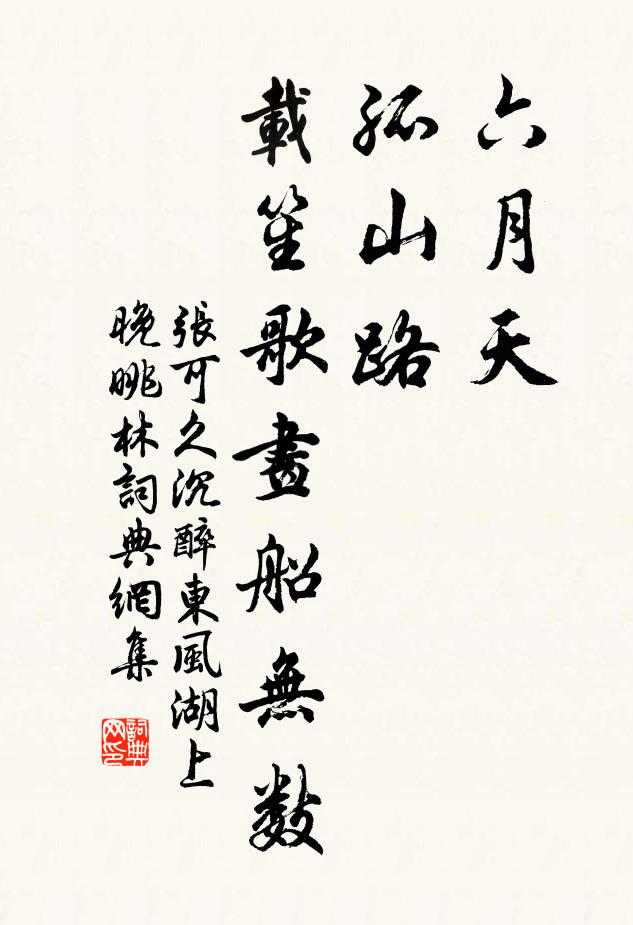 六月天
孤山路
載笙歌畫船無數
張可久沉醉東風湖上
晚眺林詞典網集
詞典網印